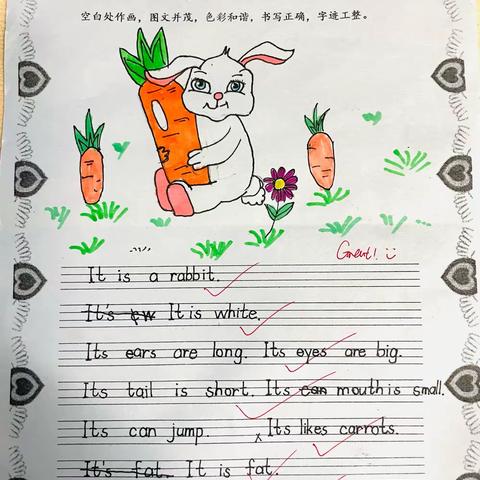 空白处作画，图文并茂，色彩和谐，书写正确，字迹工整。
Great!
It is a rabbit.
It's It is white.
Its ears are long. Its eyes are big.
Its tail is short. Its can mouth is small.
Its can jump. Its likes carrots.
It's fat. It is fat.